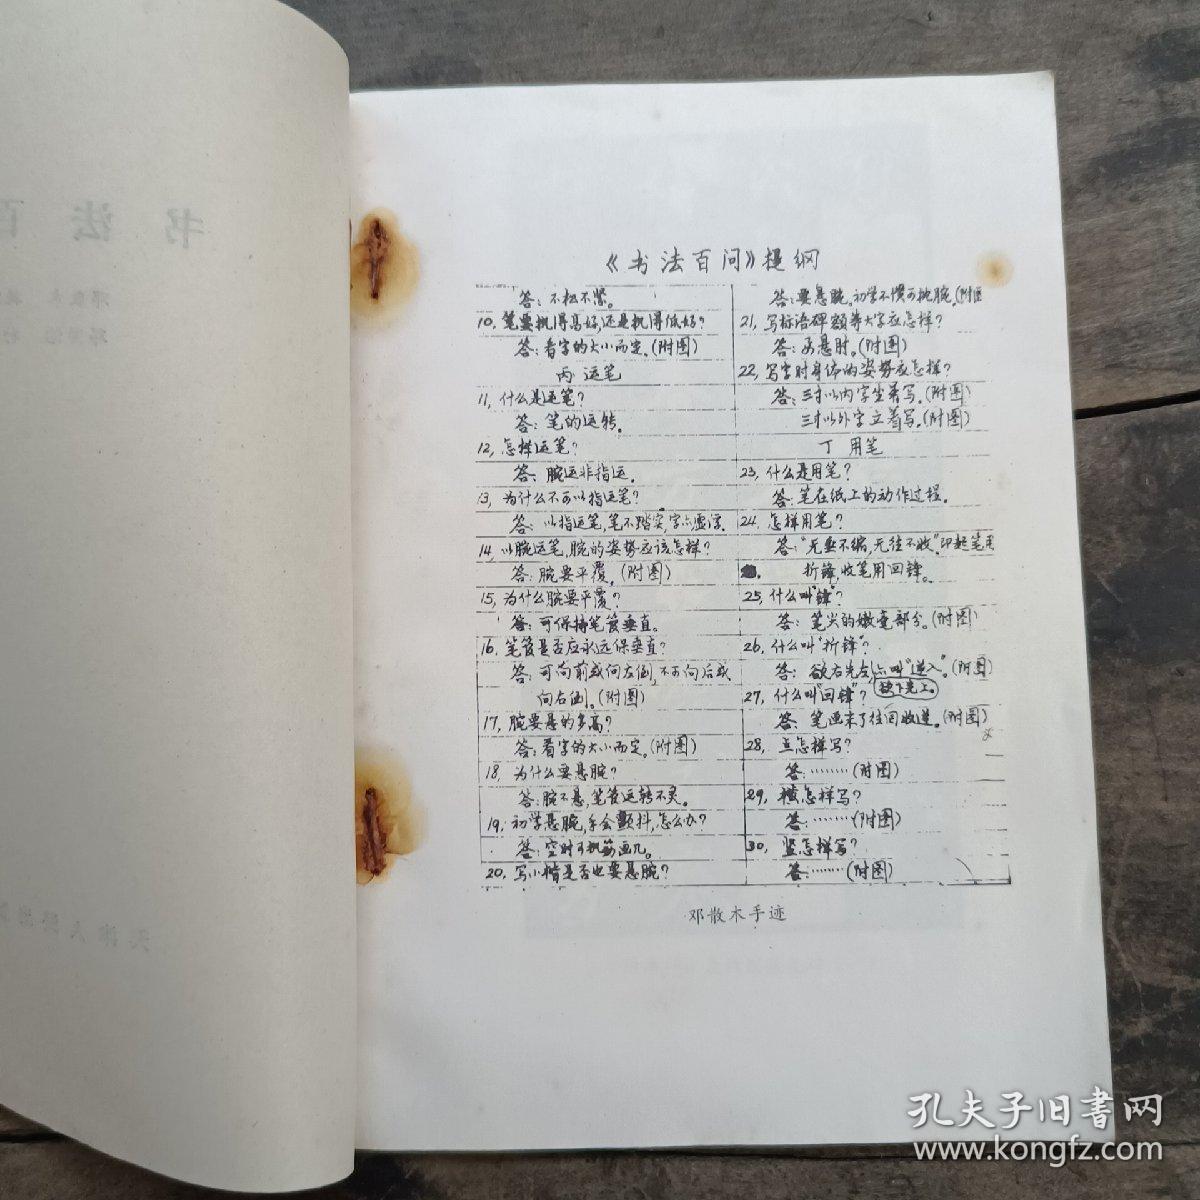 书法百
《书法百问》提纲
答：不松不紧。
10，笔要执得高好，还是执得低好？
答：看字的大小而定。(附图)
丙 运笔
11，什么是运笔？
答：笔的运转。
12，怎样运笔？
答：腕运非指运。
13，为什么不可以指运笔？
答：以指运笔，笔不踏实，字亦虚浮。
14，以腕运笔，腕的姿势应该怎样？
答：腕要平覆。(附图)
15，为什么腕要平覆？
答：可保持笔管垂直。
16，笔管是否应永远保垂直？
答：可向前或向左倒，不可向后或
向右倒。(附图)
17，腕要悬的多高？
答：看字的大小而定。(附图)
18，为什么要悬腕？
答：腕不悬，笔管运转不灵。
19，初学悬腕，手会颤抖，怎么办？
答：空时可执筋画几。
20，写小楷是否也要悬腕？
答：要悬腕。初学不惯可枕腕。(附图
21，写标语碑额等大字应怎样？
答：要悬肘。(附图)
22，写字时身体的姿势应怎样？
答：三寸以内字坐着写。(附图)
三寸以外字立着写。(附图)
丁 用笔
23，什么是用笔？
答：笔在纸上的动作过程。
24，怎样用笔？
答：“无垂不缩，无往不收”。即起笔用
折锋，收笔用回锋。
25，什么叫“锋”？
答：笔尖的嫩毫部分。(附图)
26，什么叫“折锋”？
答：欲右先左，亦叫“逆入”。(附图)
欲下先上。
27，什么叫“回锋”？
答：笔画末了往回收进。(附图)
28，点怎样写？
答：………(附图)
29，横怎样写？
答：………(附图)
30，竖怎样写？
答：………(附图)
邓散木手迹
孔夫子旧書网
www.kongfz.com